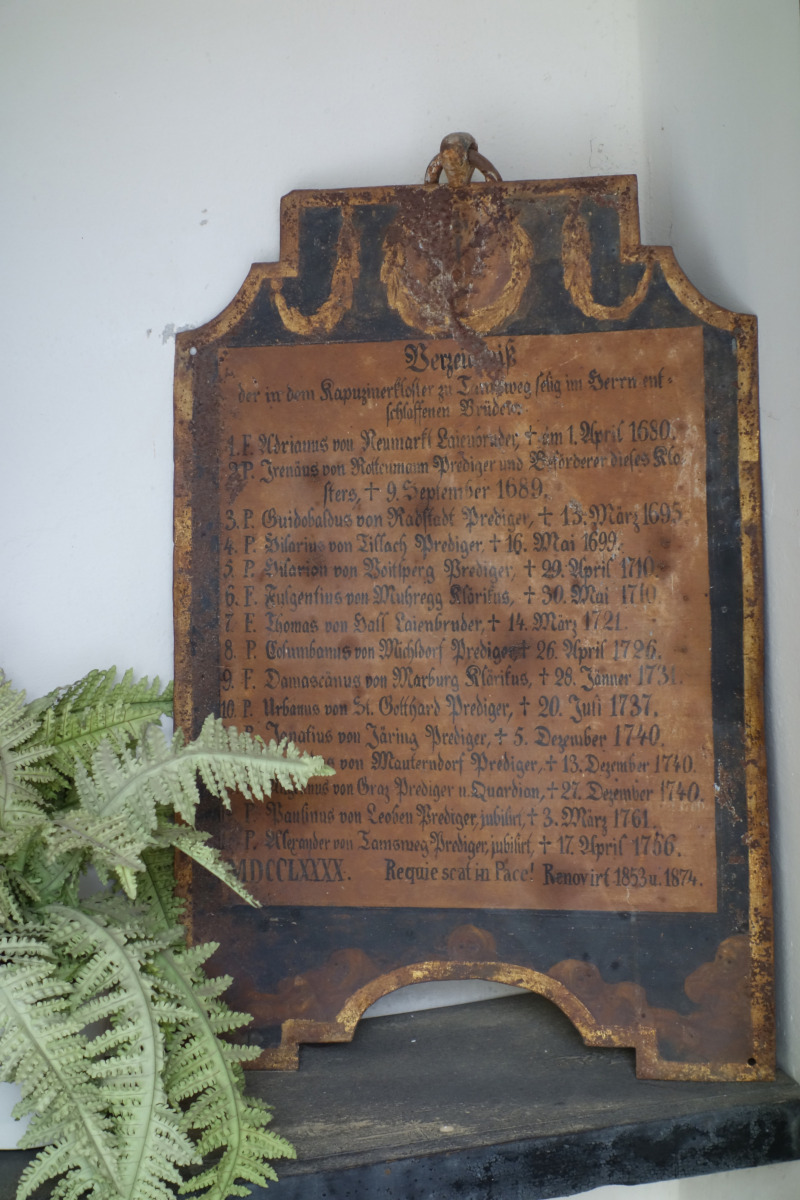 Verzeichniß
der in dem Kapuzinerkloster zu Tamsweg selig im Herrn ent-
schlaffenen Brüder.
1. F. Adrianus von Neumarkt Laienbruder, † am 1. April 1680.
2 P. Irenäus von Rottenmann Prediger und Beförderer dieses Klo-
sters, † 9. September 1689.
3. P. Guidobaldus von Radstadt Prediger, † 13. März 1695.
4. P. Hilarius von Villach Prediger, † 16. Mai 1699.
5. P. Hilarion von Voitsperg Prediger, † 29. April 1710.
6. F. Fulgentius von Muhregg Klärikus, † 30. Mai 1710.
7 F. Thomas von Hall Laienbruder, † 14. März 1721.
8. P. Columbanus von Michldorf Prediger, † 26. April 1726.
9. F. Damascänus von Marburg Klärikus, † 28. Jänner 1731.
10. P. Urbanus von St. Gotthard Prediger, † 20. Juli 1737.
P. Ignatius von Järing Prediger, † 5. Dezember 1740.
von Mauterndorf Prediger, † 13. Dezember 1740.
von Graz Prediger u. Quardian, † 27. Dezember 1740.
P. Paulinus von Leoben Prediger, jubilirt, † 3. März 1761.
P. Alexander von Tamsweg Prediger, jubilirt, † 17. April 1756.
MDCCLXXXX. Requiescat in Pace! Renovirt 1853 u. 1874.